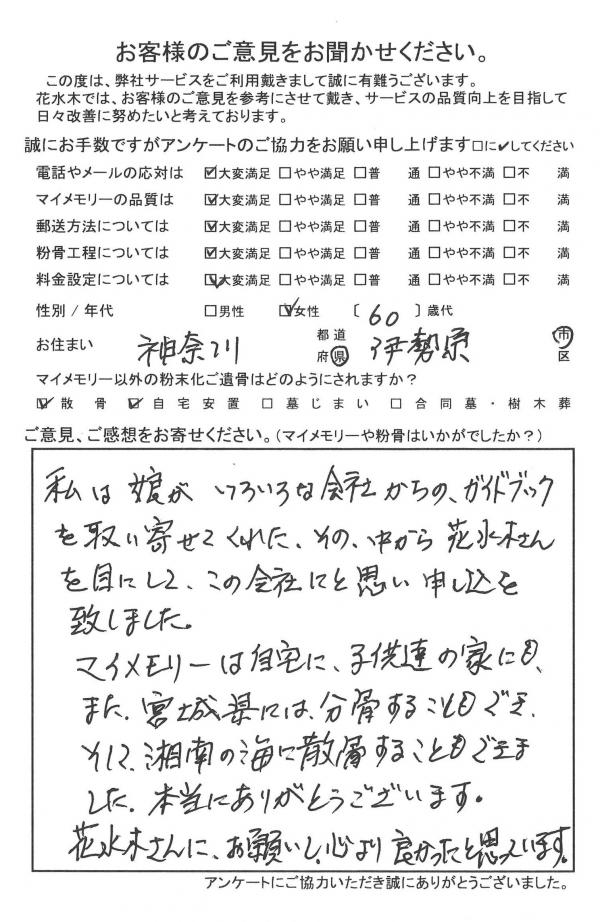 お客様のご意見をお聞かせください。
この度は、弊社サービスをご利用戴きまして誠に有難うございます。
花水木では、お客様のご意見を参考にさせて戴き、サービスの品質向上を目指して
日々改善に努めたいと考えております。
誠にお手数ですがアンケートのご協力をお願い申し上げます□に✔してください
電話やメールの応対は ☑大変満足 □やや満足 □普 通 □やや不満 □不 満
マイメモリーの品質は ☑大変満足 □やや満足 □普 通 □やや不満 □不 満
郵送方法については ☑大変満足 □やや満足 □普 通 □やや不満 □不 満
粉骨工程については ☑大変満足 □やや満足 □普 通 □やや不満 □不 満
料金設定については ☑大変満足 □やや満足 □普 通 □やや不満 □不 満
性別 / 年代 □男性 ☑女性 〔 60 〕歳代
お住まい 神奈川 都道府県 伊勢原 市区
マイメモリー以外の粉末化ご遺骨はどのようにされますか？
☑散骨 ☑自宅安置 □墓じまい □合同墓・樹木葬
ご意見、ご感想をお寄せください。(マイメモリーや粉骨はいかがでしたか？)
私は娘が いろいろな会社からの、ガイドブック
を取り寄せてくれた、その、中から 花水木さん
を目にして、この会社にと思い 申し込を
致しました。
マイメモリーは自宅に、子供達の家にも、
また、宮城県には、分骨することもでき、
そして、湘南の海に散骨することもできま
した。本当にありがとうございます。
花水木さんに、お願いし、心より良かったと思っています。
アンケートにご協力いただき誠にありがとうございました。